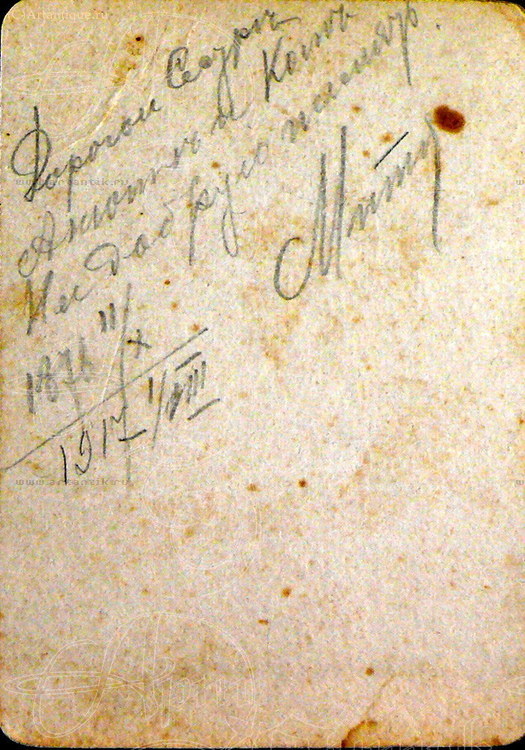 Дорогой Сестрѣ
Анютѣ и Колѣ
На добрую память.
Митя
1878 11/X
1917 1/VIII